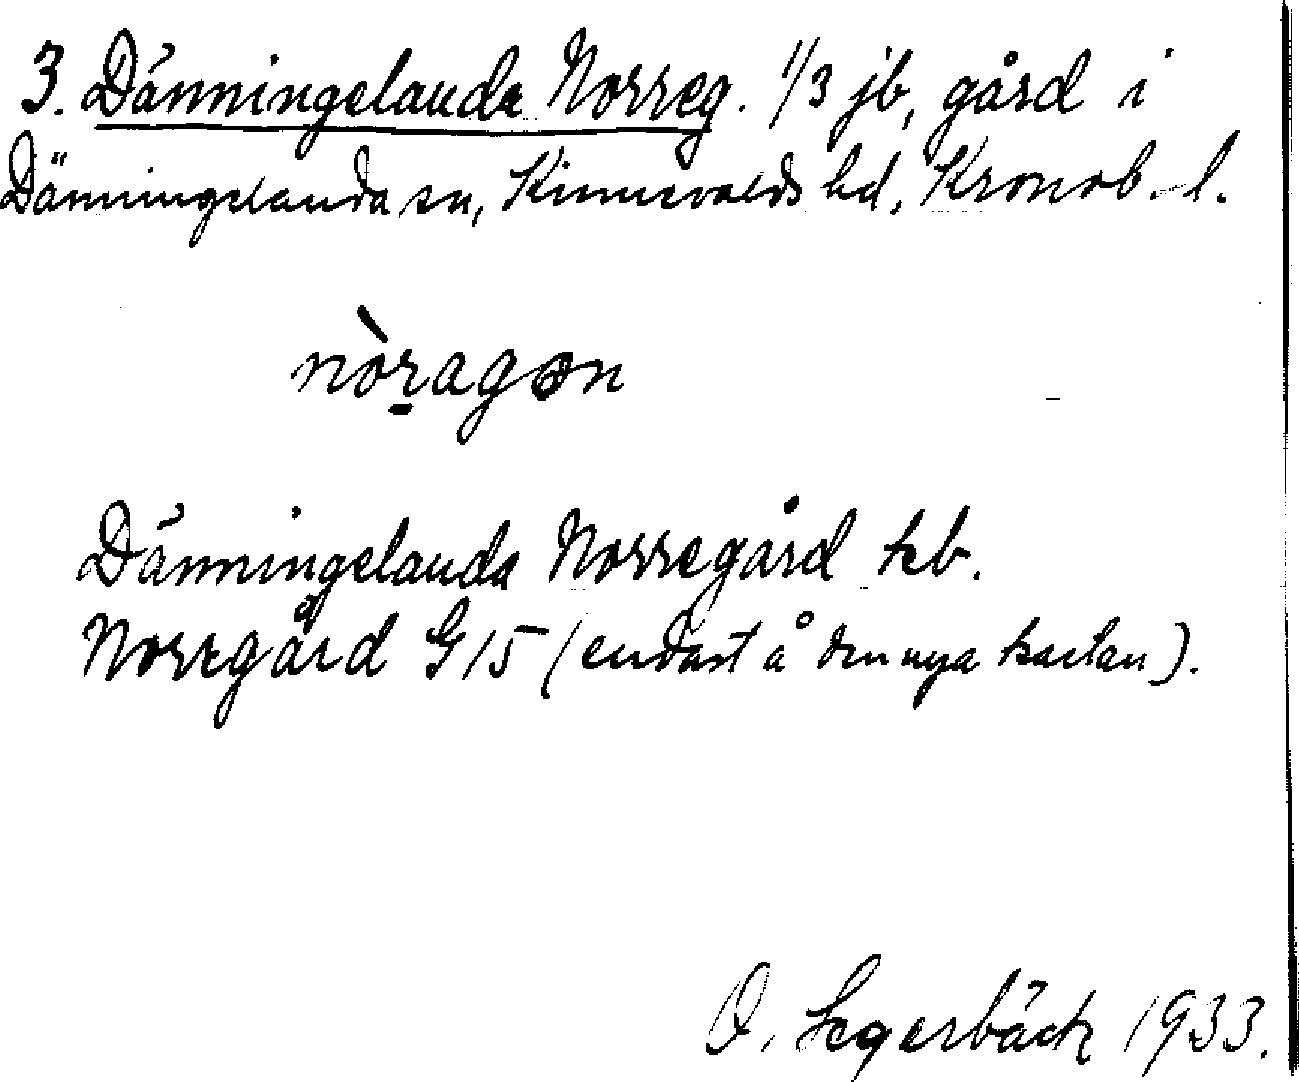 3. Dänningelanda Norreg. 1/3 jb, gård i
Dänningelanda sn, Kinnevalds hd, Kronob. l.
nòragən
Dänningelanda Norregård tkb.
Norregård G15 (endast å den nya kartan).
O. Segerbäck 1933.